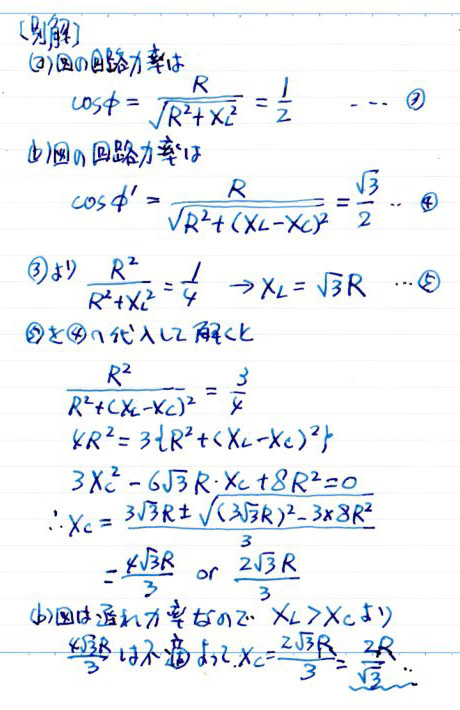 [別解]
(a)図の回路力率は
cosφ = R / √(R²+XL²) = 1/2 ---- ③
(b)図の回路力率は
cosφ' = R / √(R²+(XL-XC)²) = √3/2 ‥ ④
③より R²/(R²+XL²) = 1/4 → XL = √3R …⑤
⑤を④へ代入して解くと
R²/(R²+(XL-XC)²) = 3/4
4R² = 3{R²+(XL-XC)²}
3XC² - 6√3R·XC + 8R² = 0
∴XC = (3√3R ± √((3√3R)² - 3×8R²)) / 3
= 4√3R/3 or 2√3R/3
(b)図は遅れ力率なので XL > XC より
4√3R/3 は不適 よって、XC = 2√3R/3 = 2R/√3 ‥